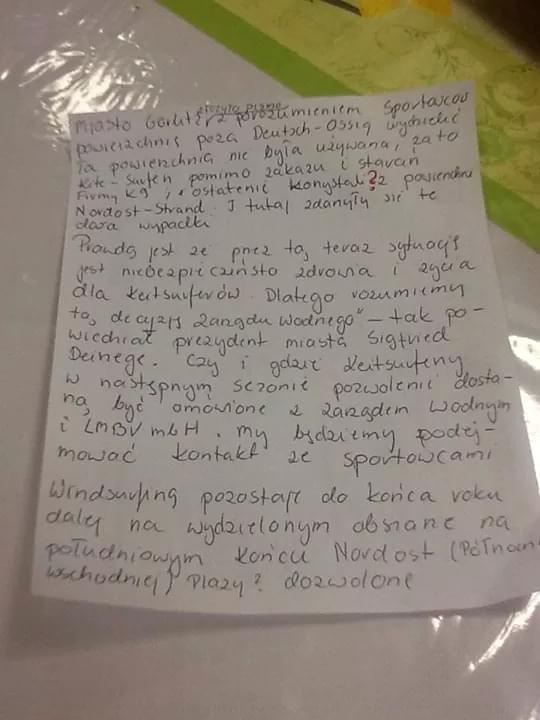 złożyło pismo
Miasto Gorlitz z porozumieniem Sportowców
powierzchnię poza Deutsch-Ossig wydzielić
Ta powierzchnia nie była używana, za to
Kite-Surfen pomimo zakazu i starań
Firmy K9, ostatenić konystali ? z powierzchni
Nordost-Strand. I tutaj zdanyły się te
dwa wypadki
Prawdą jest że pnez to, teraz sytuacja
jest niebezpieczeństo zdrowia i życia
dla keitsurferów. Dlatego rozumiemy
to, decyzję zarządu wodnego" – tak po-
wiedział prezydent miasta Sigfried
Deinege. Czy i gdzie Keitsurfeny
w następnym sezonie pozwolenie dosta-
ną być omówione z zarządem wodnym
i LMBV mbH. my będziemy podej-
mować kontakt ze sportowcami
Windsurfing pozostaje do końca roku
dalej na wydzielonym obszarze na
południowym końcu Nordost (Północn
wschodniej) Plazy? dozwolone